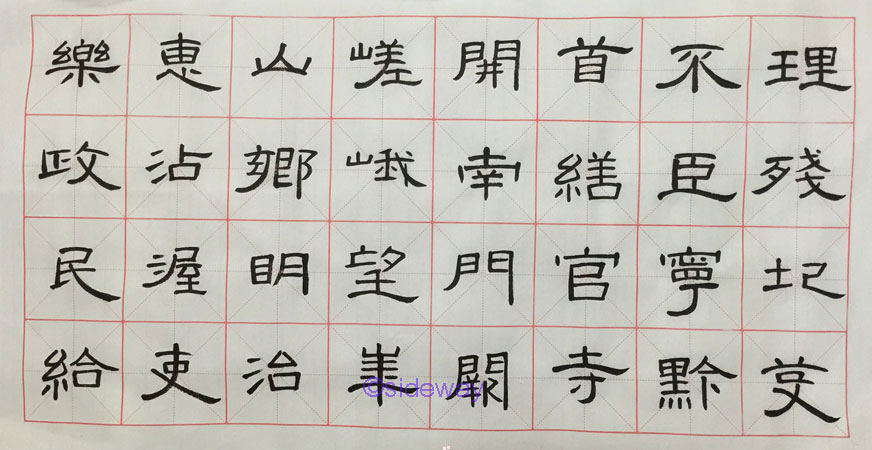 理殘圮芟
不臣寧黔
首繕官寺
開南門闕
嵯峨望華
山鄉明治
恵沾渥吏
樂政民給
©sideway